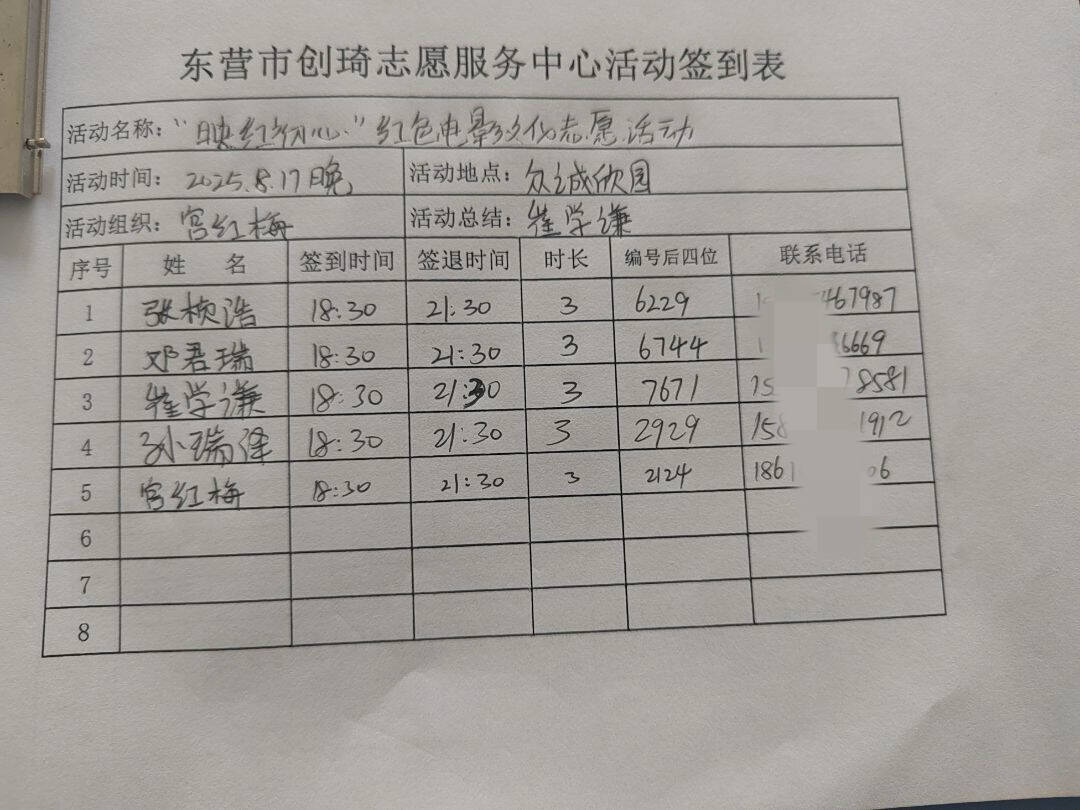 东营市创琦志愿服务中心活动签到表
活动名称：“映红初心”红色电影文化志愿活动
活动时间：2025.8.17晚 活动地点：众诚欣园
活动组织：宫红梅 活动总结：崔学谦
序号 姓 名 签到时间 签退时间 时长 编号后四位 联系电话
1 张桢浩 18:30 21:30 3 6229 1 467987
2 邓君瑞 18:30 21:30 3 6744 1 86669
3 崔学谦 18:30 21:30 3 7671 15 78581
4 孙瑞泽 18:30 21:30 3 2929 158 1912
5 宫红梅 18:30 21:30 3 2124 186 06
6
7
8